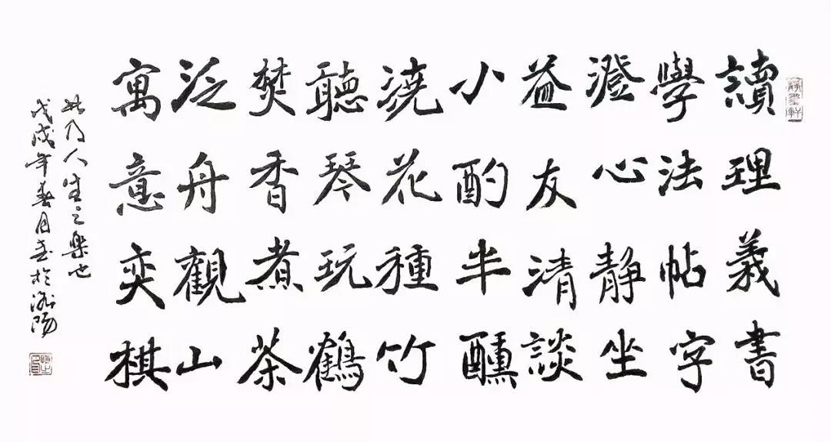 讀理義書
學法帖字
澄心靜坐
益友清談
小酌半醺
澆花種竹
聽琴玩鶴
焚香煮茶
泛舟觀山
寓意奕棋
此乃人生之樂也
戊戌年春月書於陽